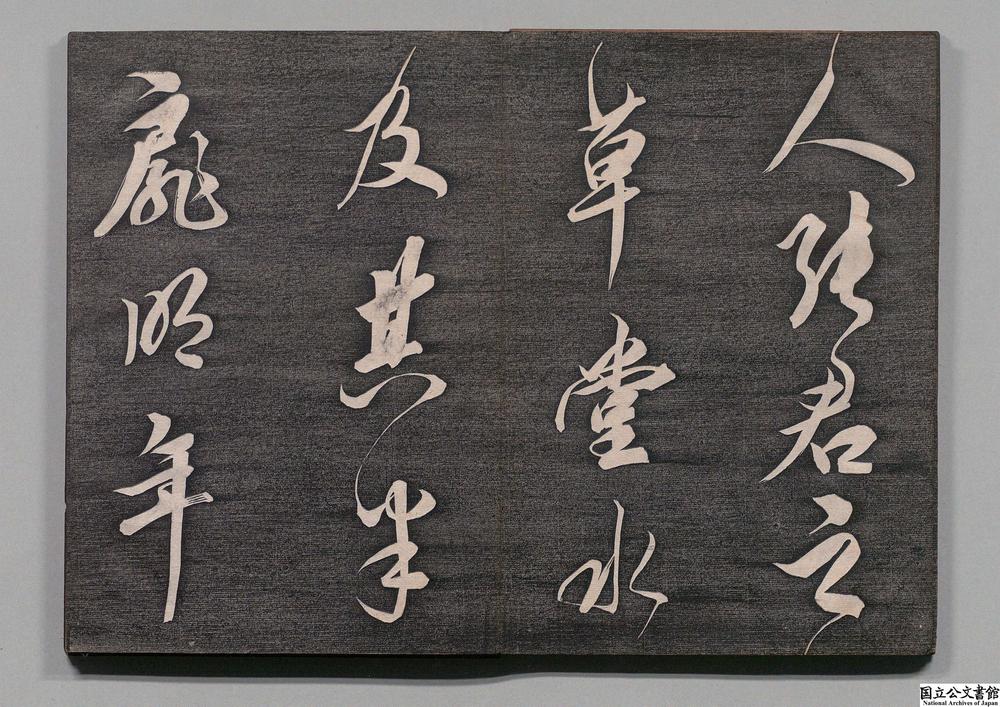 人張君之
草堂水
及其半
扉明年
国立公文書館
National Archives of Japan